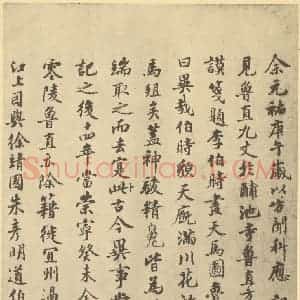 余元祐庚午歲以方聞科應
見魯直九丈於酺池寺魯直方
謨箋題李伯時畫天馬圖魯
曰異哉伯時貌天厩滿川花放
馬殂矣蓋神駿精魄皆為
端取之而去寔古今異事當
記之後十四年當崇寧癸未余
零陵魯直亦除籍徙宜州過
江上因與徐靖國朱彦明道伯